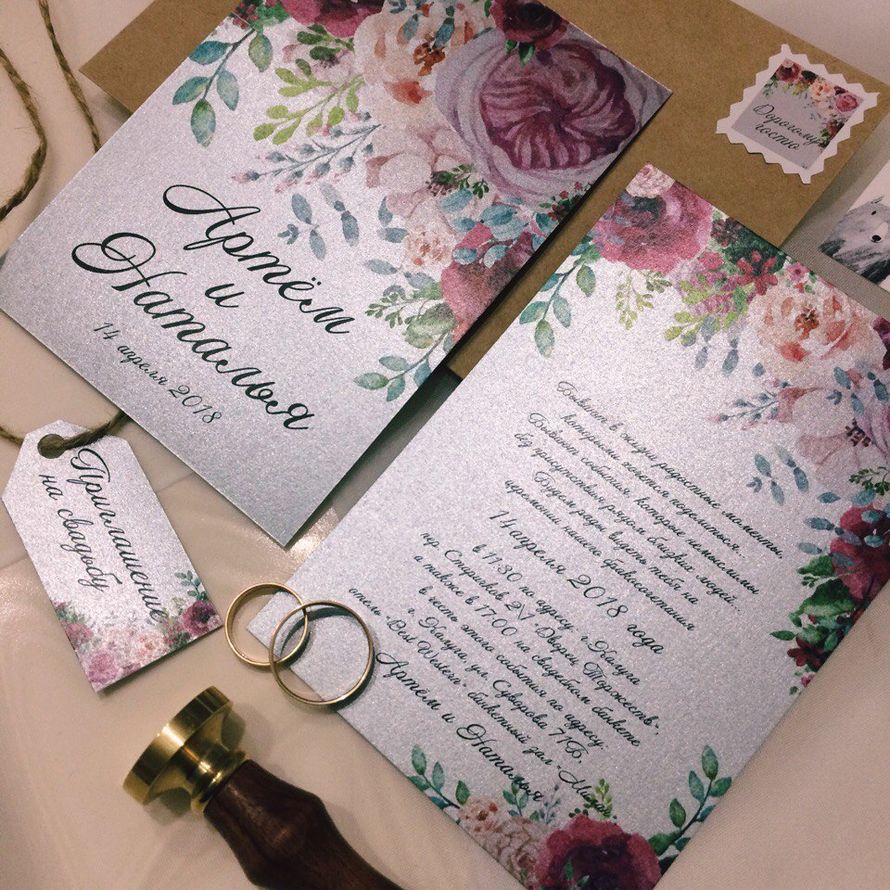 Артём
и
Наталья
14 апреля 2018
Дорогому
гостю
Приглашение
на свадьбу
Бывают в жизни радостные моменты,
которыми хочется поделиться...
Бывают события, которые немыслимы
без присутствия рядом близких людей...
Будем рады видеть тебя на
церемонии нашего бракосочетания
14 апреля 2018 года
в 11:30 по адресу: г. Калуга
пер. Старичков 2А "Дворец Торжеств",
а также в 17:00 на свадебном банкете
в честь этого события по адресу:
г. Калуга, ул. Суворова 71Б,
отель "Best Western", банкетный зал
Артём и Наталья